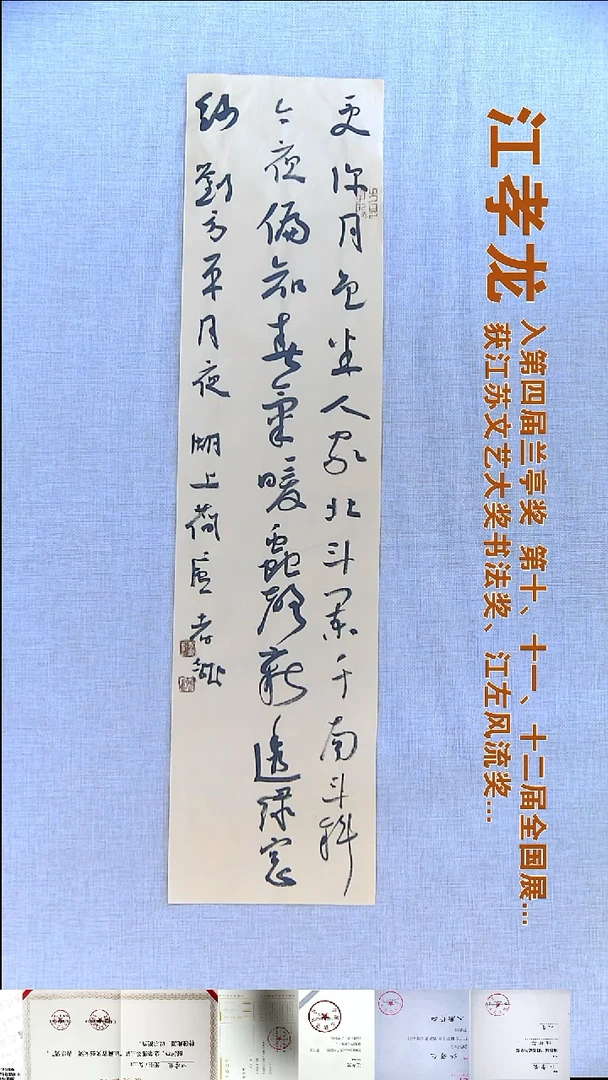 江孝龙
入第四届兰亭奖 第十、十一、十二届全国展...
获江苏文艺大奖书法奖、江左风流奖...
更深月色半人家北斗闌干南斗斜
今夜偏知春氣暖蟲聲新透綠窗
紗 劉方平月夜 湖上荷 孝龍